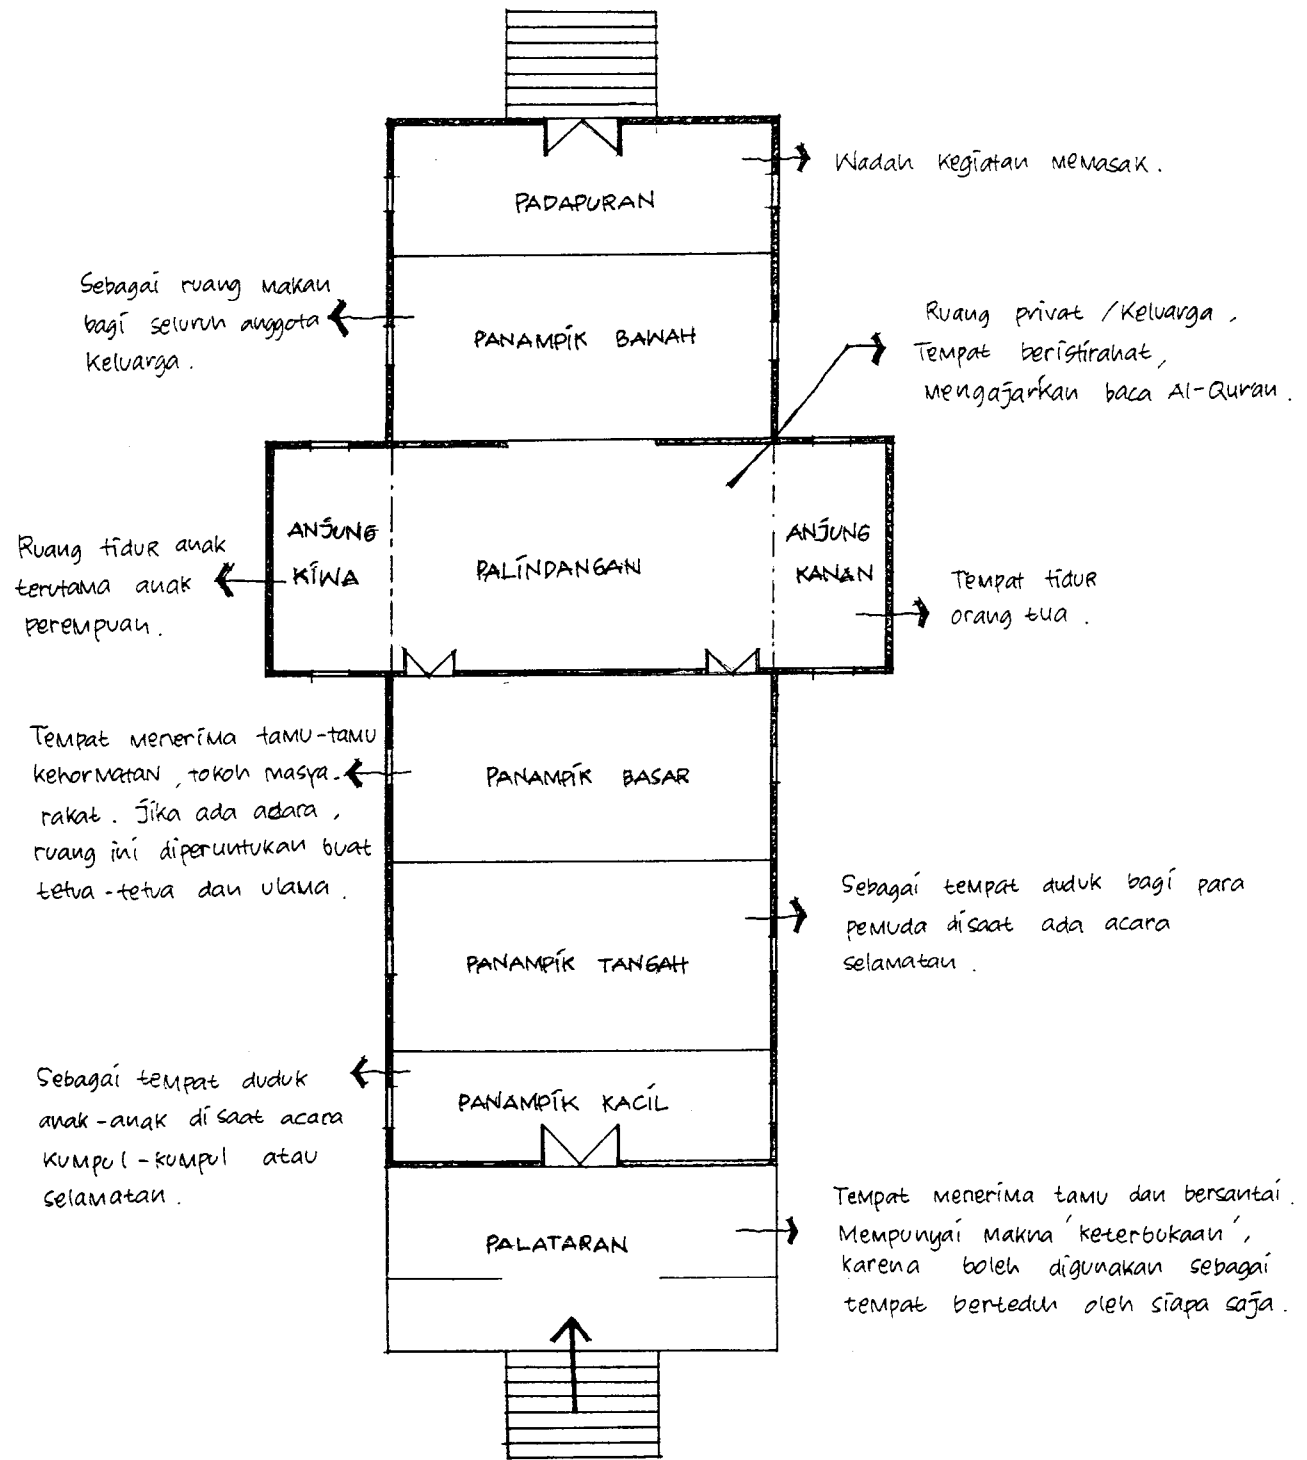 Wadah kegiatan memasak.
PADAPURAN
Sebagai ruang makan
bagi seluruh anggota
keluarga.
PANAMPIK BAWAH
Ruang privat / Keluarga,
Tempat beristirahat,
mengajarkan baca Al-Quran.
ANJUNG
KIWA
Ruang tidur anak
terutama anak
perempuan.
PALINDANGAN
ANJUNG
KANAN
Tempat tidur
orang tua.
Tempat menerima tamu-tamu
kehormatan, tokoh masya-
rakat. Jika ada adara,
ruang ini diperuntukan buat
tetua-tetua dan ulama.
PANAMPIK BASAR
Sebagai tempat duduk bagi para
pemuda disaat ada acara
selamatan.
PANAMPIK TANGAH
Sebagai tempat duduk
anak-anak disaat acara
kumpul-kumpul atau
selamatan.
PANAMPIK KACIL
PALATARAN
Tempat menerima tamu dan bersantai.
Mempunyai makna 'keterbukaan',
karena boleh digunakan sebagai
tempat berteduh oleh siapa saja.